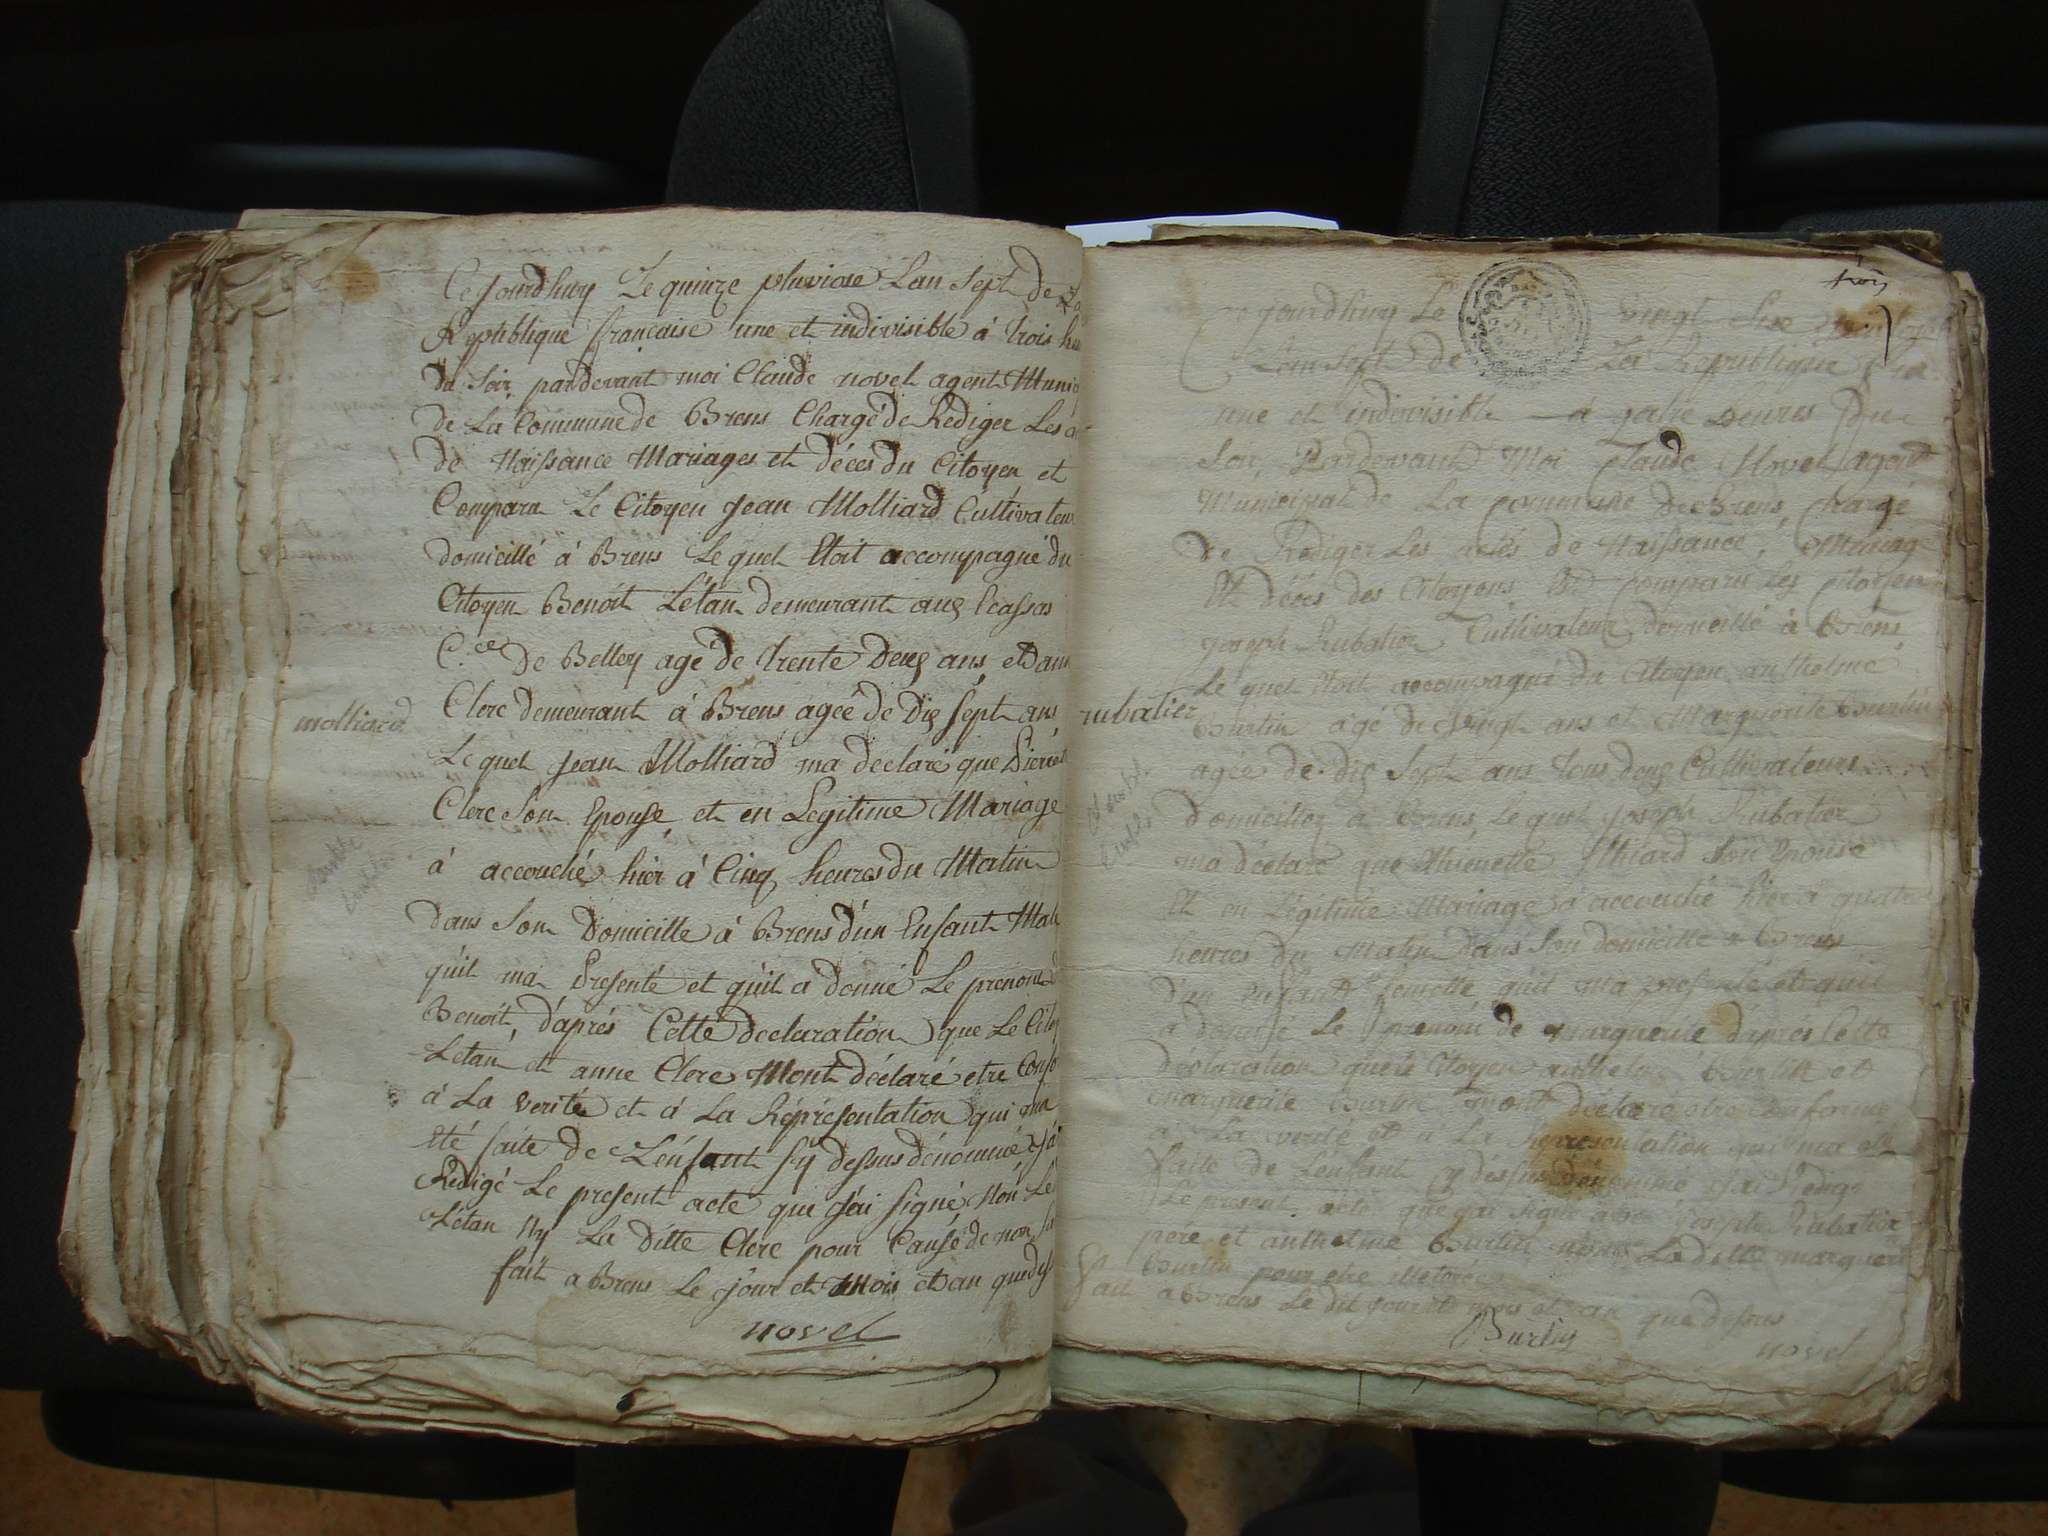 Cejourdhuy Le quinze pluviose Lan Sept de La
Republique francaise une et indivisible à trois heu
du Soir pardevant moi Claude novel agent Munici
de La Commune de Brens Chargé de Rediger Les ac
de Naissance Mariages et déces du Citoyen et
Comparu Le Citoyen jean Molliard Cultivateur
domicillé à Brens Le quel Etoit accompagné du
Citoyen Benoit Létan demeurant aux Ecassas
C.ce de Belley agé de trente deux ans et ann
molliard
Clerc demeurant à Brens agée de dix sept ans
Le quel jean Molliard ma déclaré que Pierrette
Clerc Son Epouse et en Legitime Mariage
à accouché hier à Cinq heures du Matin
dans Son Domicille à Brens d'un Enfant Male
qu'il ma Presenté et qu'il a donné Le prenom d
Benoit, d'aprés Cette declaration que Le Citoy
Létan et anne Clerc Mont déclaré etre Confo
à La verité et à La Réprésentation qui ma
Eté faite de L'enfant sy dessus dénommé j'ai
Rédigé Le present acte que j'ai signé Non Le
Létan Ny La ditte Clerc pour Cause de non
fait a Brens Le jour et Mois et an que dess
novel
trois
Cejourdhuy Le vingt Six
Lan sept de La Republique
une et indivisible à quatre heures du
Soir Pardevant Moi Claude Novel agent
Municipal de La Commune de Brens, Chargé
de Rediger Les actes de Naissance, Mariage
Et déces des Citoyens Est comparu Les Citoyen
joseph Rubatier Cultivateur domicillé à Brens
Le quel Etoit accompagné du Citoyen anthelme
rubatier
Burtin agé de Vingt ans et Marguerite Burtin
agée de dix Sept ans tous deux Cultivateurs
domicilliez à Brens, Le quel joseph Rubatier
ma déclaré que Thienette Miard Son Epouse
Et en Légitime Mariage à accouché hier à quatre
heures du Matin dans Son domicille à Brens
d'un Enfant femelle qu'il ma presenté et qu'il
a donné Le prenom de Marguerite d'aprés Cette
declaration que Le Citoyen anthelme Burtin et
Marguerite Burtin mont déclaré etre Conforme
à La verité et à La Representation qui ma eté
faite de L'enfant sy dessus dénommé j'ai Redigé
Le present acte que j'ai signé avec joseph Rubatier
père et anthelme Burtin non Laditte marguerite
Burtin pour etre illetorée
fait a Brens Le dit jour et mois et an que dessus
Burtin
novel